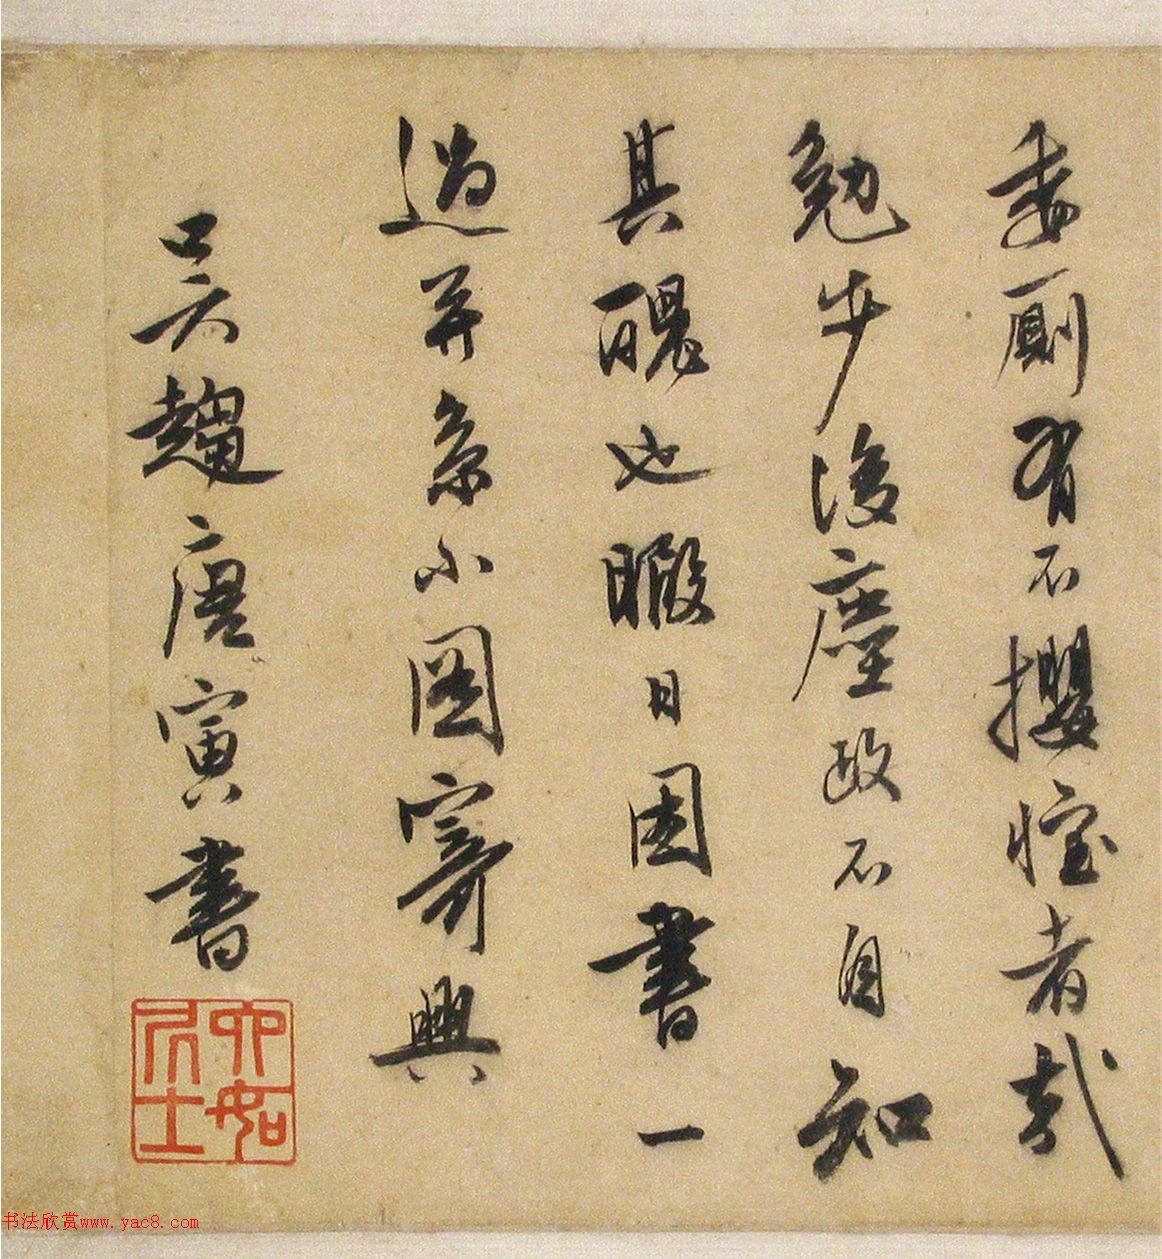 委厠有不攖者哉
勉步後塵政不自知
其醜也暇日因書一
過并系小圖寄興
吳趨唐寅書
六如居士
书法欣赏www.yac8.com